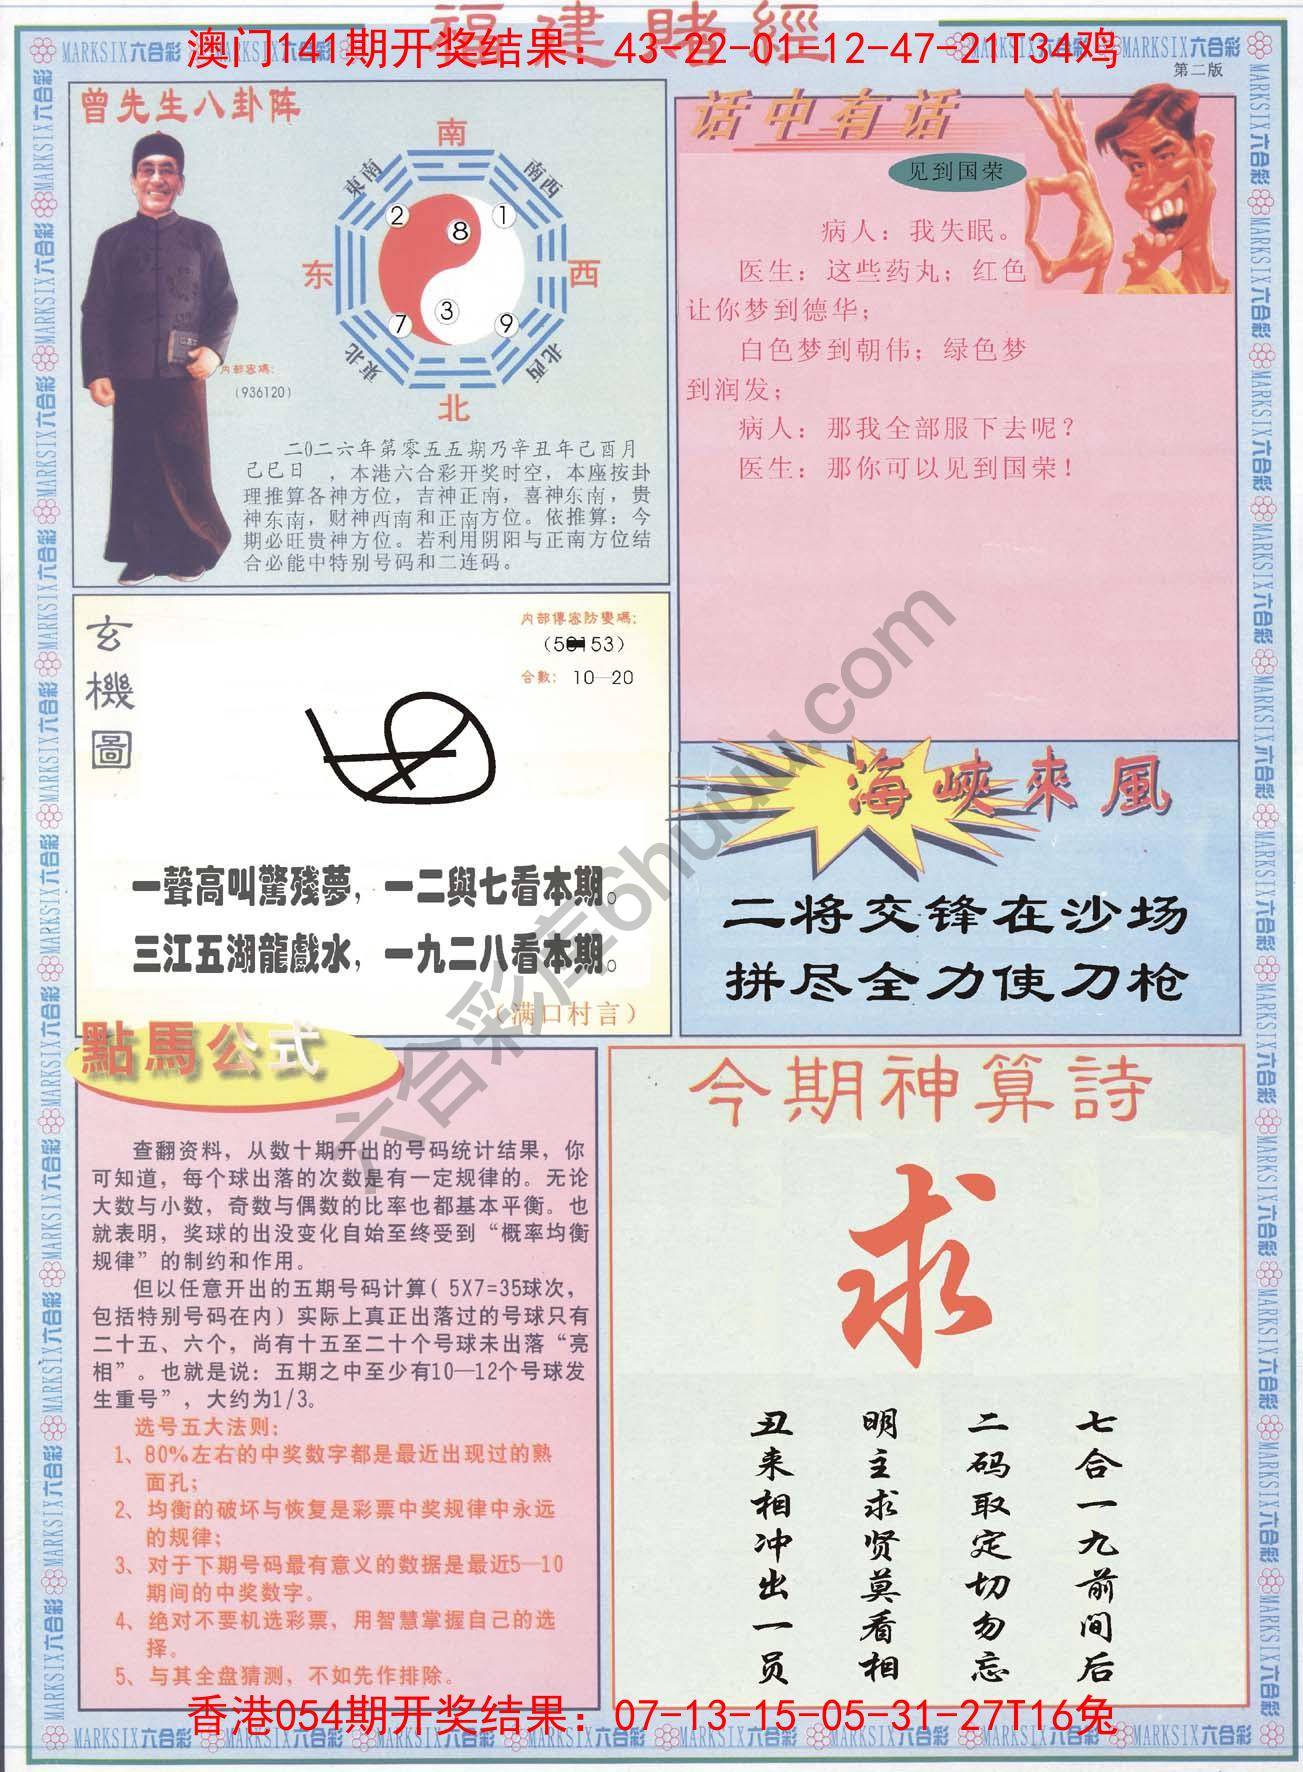 福建賭經
澳门141期开奖结果：43-22-01-12-47-21T34鸡
MARKSIX六合彩
第二版
曾先生八卦阵
南
東南
南西
2
1
8
东
西
3
7
9
東北
北西
北
内部密碼：
（936120）
二0二六年第零五五期乃辛丑年己酉月
己巳日，本港六合彩开奖时空，本座按卦
理推算各神方位，吉神正南，喜神东南，贵
神东南，财神西南和正南方位。依推算：今
期必旺贵神方位。若利用阴阳与正南方位结
合必能中特别号码和二连码。
话中有话
见到国荣
病人：我失眠。
医生：这些药丸；红色
让你梦到德华；
白色梦到朝伟；绿色梦
到润发；
病人：那我全部服下去呢？
医生：那你可以见到国荣！
玄機圖
内部傳密防變碼：
合數：10—20
一聲高叫驚殘夢，一二與七看本期。
三江五湖龍戲水，一九二八看本期。
（满口村言）
海峽來風
二将交锋在沙场
拼尽全力使刀枪
點馬公式
查翻资料，从数十期开出的号码统计结果，你
可知道，每个球出落的次数是有一定规律的。无论
大数与小数，奇数与偶数的比率也都基本平衡。也
就表明，奖球的出没变化自始至终受到“概率均衡
规律”的制约和作用。
但以任意开出的五期号码计算（5X7=35球次，
包括特别号码在内）实际上真正出落过的号球只有
二十五、六个，尚有十五至二十个号球未出落“亮
相”。也就是说：五期之中至少有10—12个号球发
生重号”，大约为1/3。
选号五大法则：
1、80%左右的中奖数字都是最近出现过的熟
面孔；
2、均衡的破坏与恢复是彩票中奖规律中永远
的规律；
3、对于下期号码最有意义的数据是最近5—10
期间的中奖数字。
4、绝对不要机选彩票，用智慧掌握自己的选
择。
5、与其全盘猜测，不如先作排除。
今期神算詩
求
七合一九前间后
二码取定切勿忘
明主求贤莫看相
丑来相冲出一员
六合彩库6huuu.com
香港054期开奖结果：07-13-15-05-31-27T16兔
MARKSIX六合彩